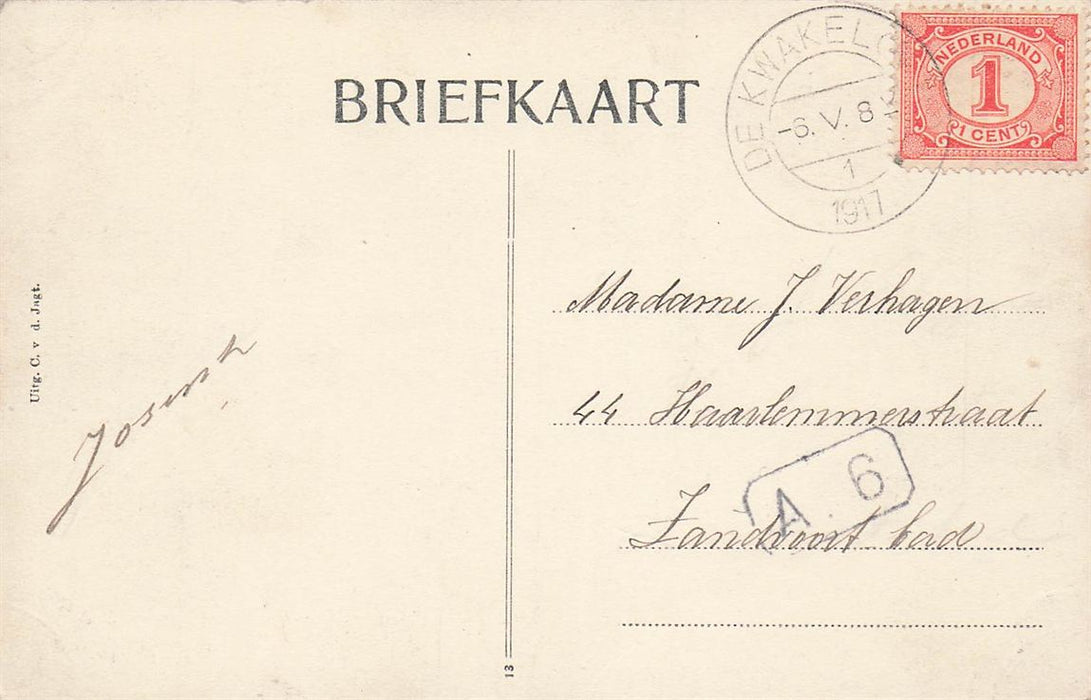 BRIEFKAART
DE KWAKEL
-6. V. 8
1
1917
NEDERLAND
1
1 CENT
Uitg. C. v d. Jagt.
Madame J. Verhagen
44 Haarlemmerstraat
Zandvoort bad
A 6
13